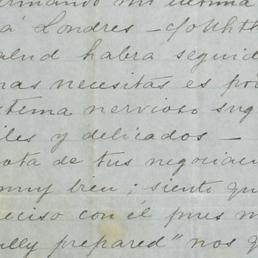 mi última
á Londres –
salud habra seguid
mas necesitas es po
stema nervioso sug
iles y delicados –
ota de tus negociac
muy bien; siento qu
eciso con él pues m
ully prepared" nos q